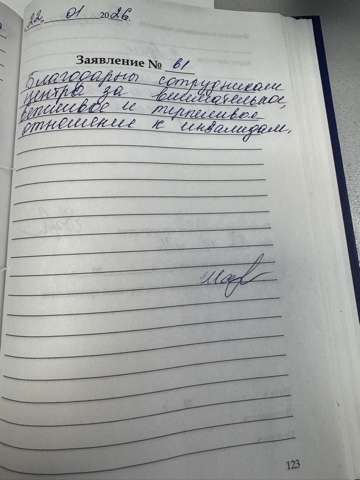 22. 01 2026
Заявление № 61
Благодарны сотрудникам
центра за внимательное,
вежливое и терпеливое
отношение к инвалидам.
123